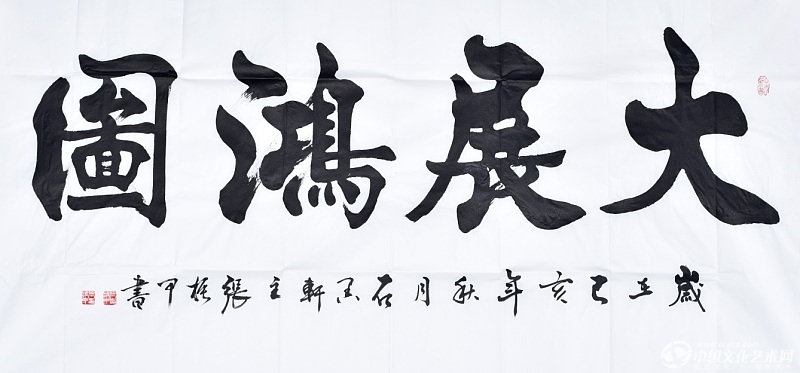 大展鴻圖
歲在己亥年秋月石墨軒主張振甲書
中国文化艺术网